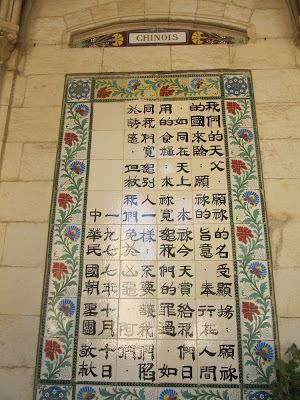 CHINOIS
我們的天父，願祢的名受顯揚；願祢
的國來臨；願祢的旨意，奉行在人間
，如同在天上。求祢今天賞給我們日
用的食糧；求祢寬恕我們的罪過，如
同我們寬恕別人一樣；不要讓我們陷
於誘惑；但救我們免於凶惡。阿們
一九七七年十月十日
中華民國朝聖團敬獻